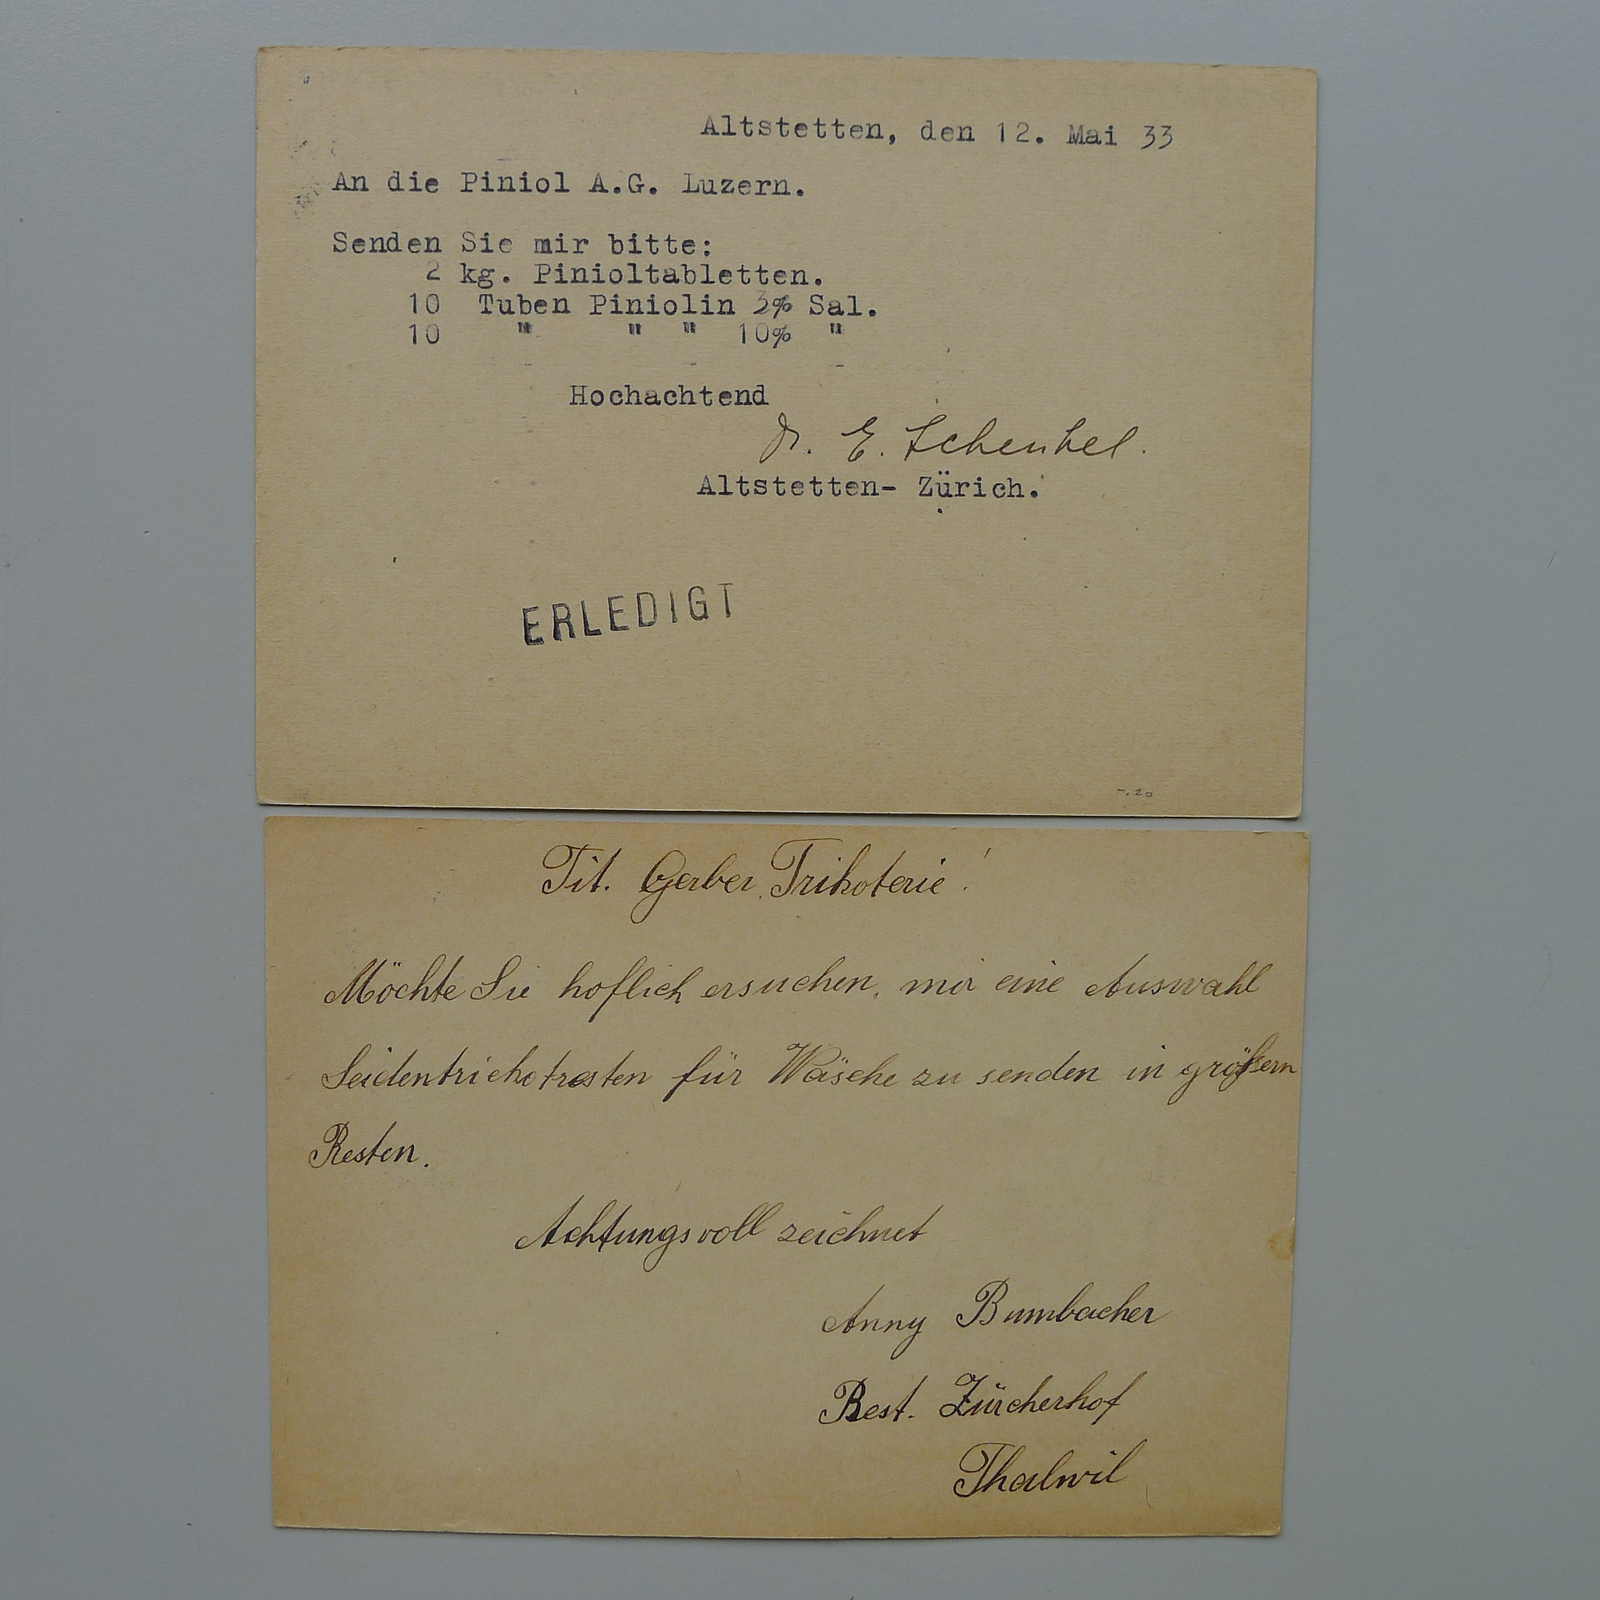 Altstetten, den 12. Mai 33
An die Piniol A.G. Luzern.
Senden Sie mir bitte:
2 kg. Pinioltabletten.
10 Tuben Piniolin 3% Sal.
10 " " " 10% "
Hochachtend
Dr. E. Schenkel.
Altstetten- Zürich.
ERLEDIGT
-.20
Tit. Gerber, Trikoterie!
Möchte Sie hoflich ersuchen, mir eine Auswahl
Seidentrickotresten für Wäsche zu senden in größern
Resten.
Achtungsvoll zeichnet
Anny Bumbacher
Rest. Zürcherhof
Thalwil